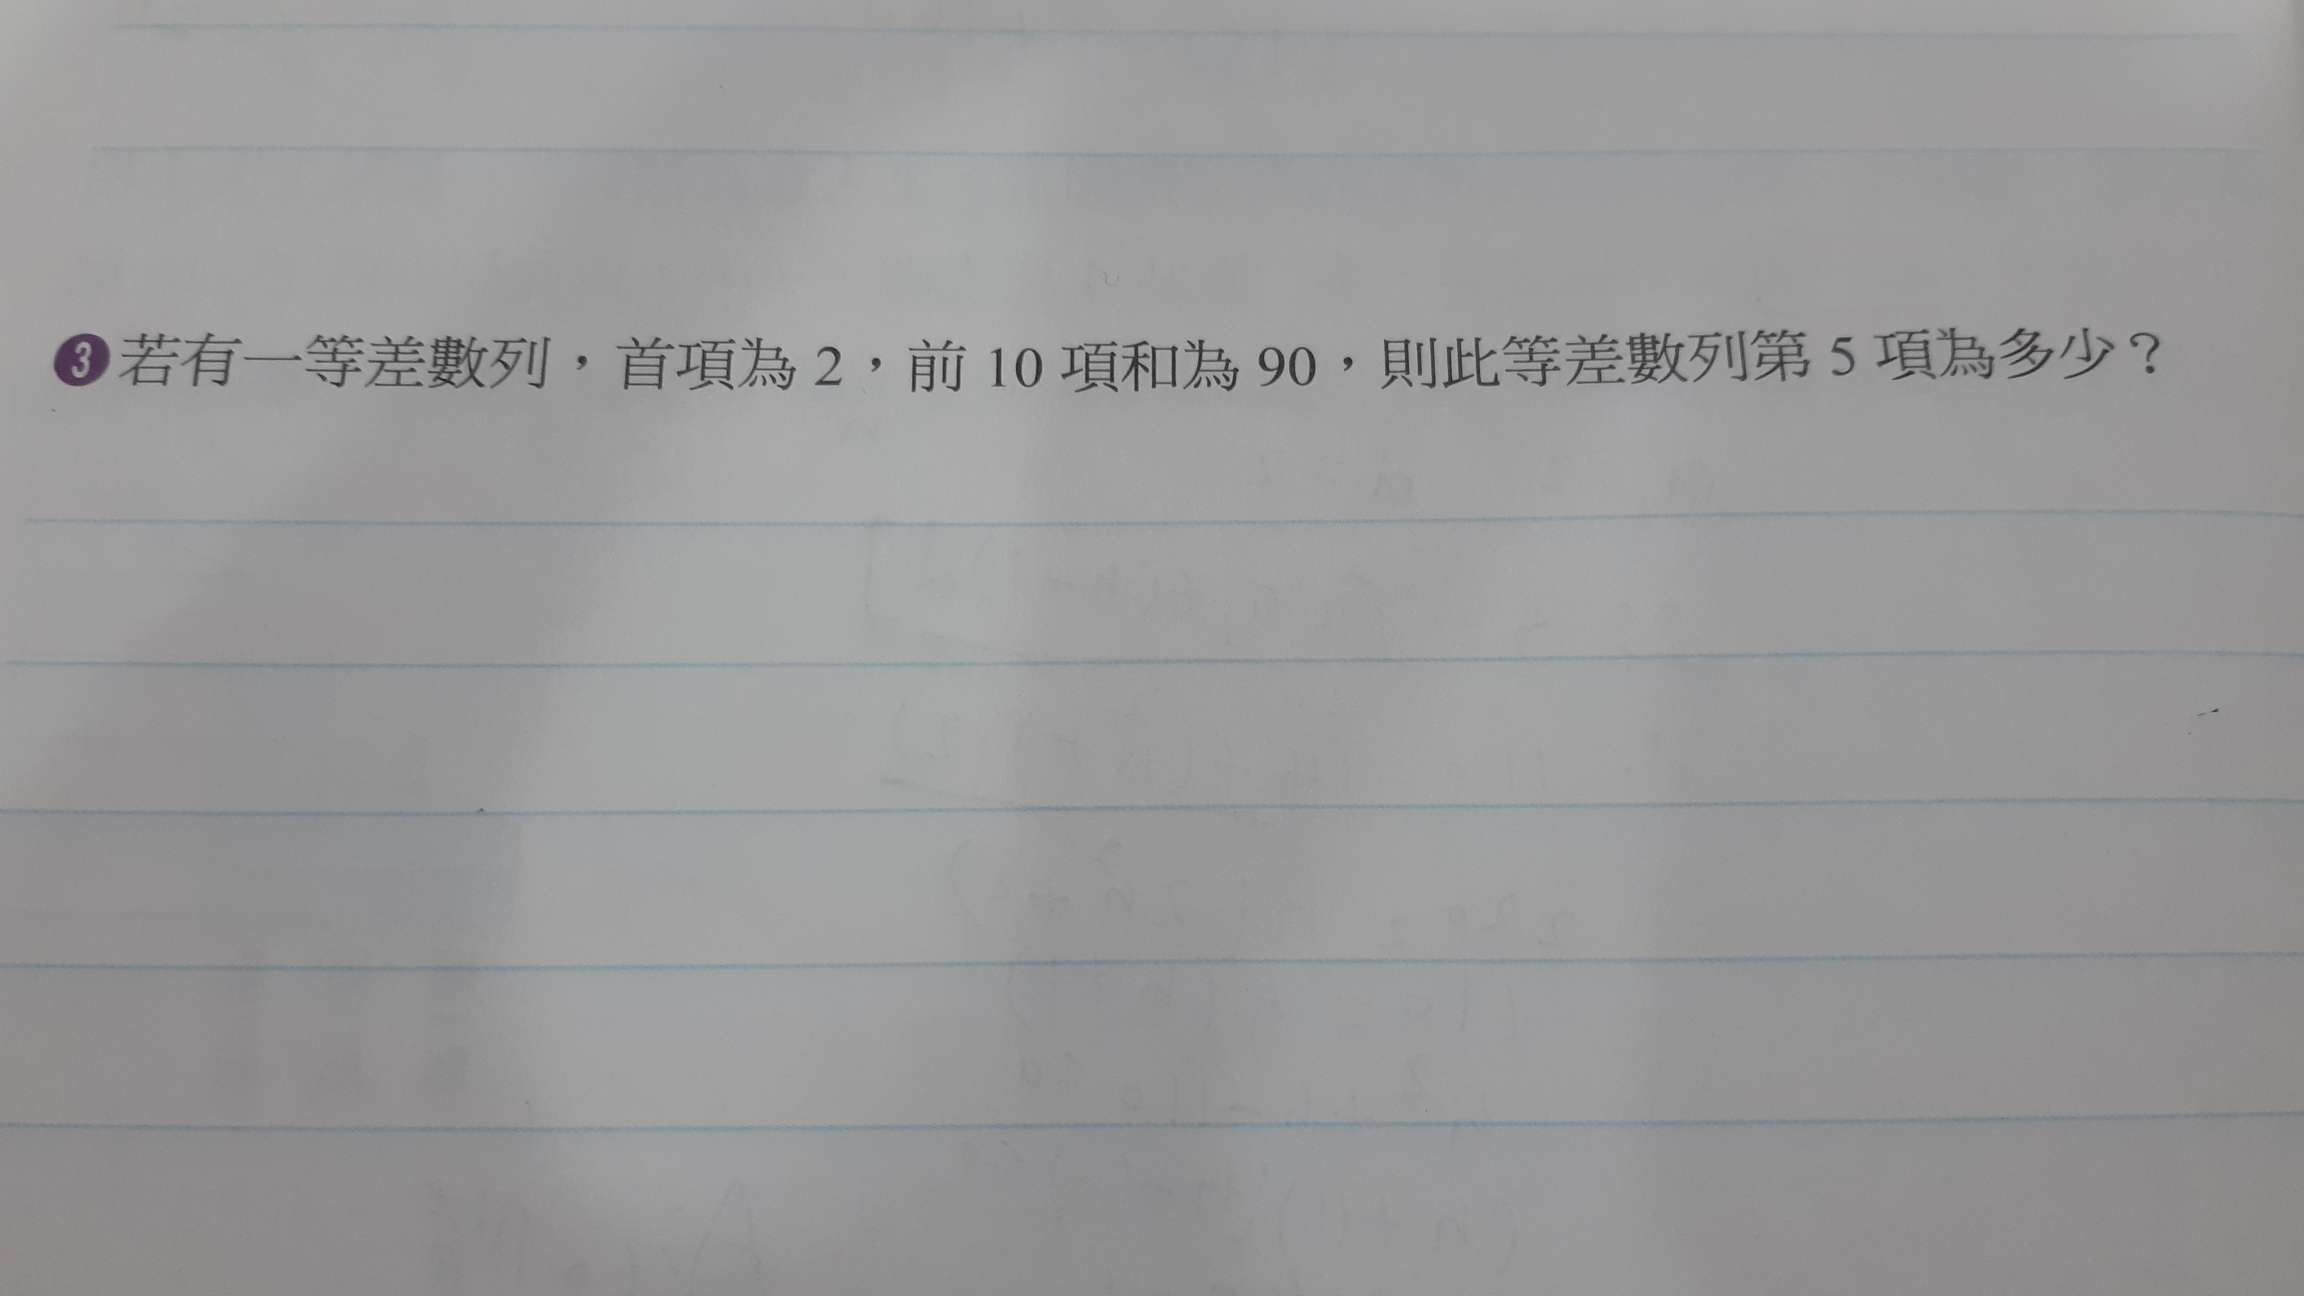 ❸若有一等差數列，首項為 2，前 10 項和為 90，則此等差數列第 5 項為多少？